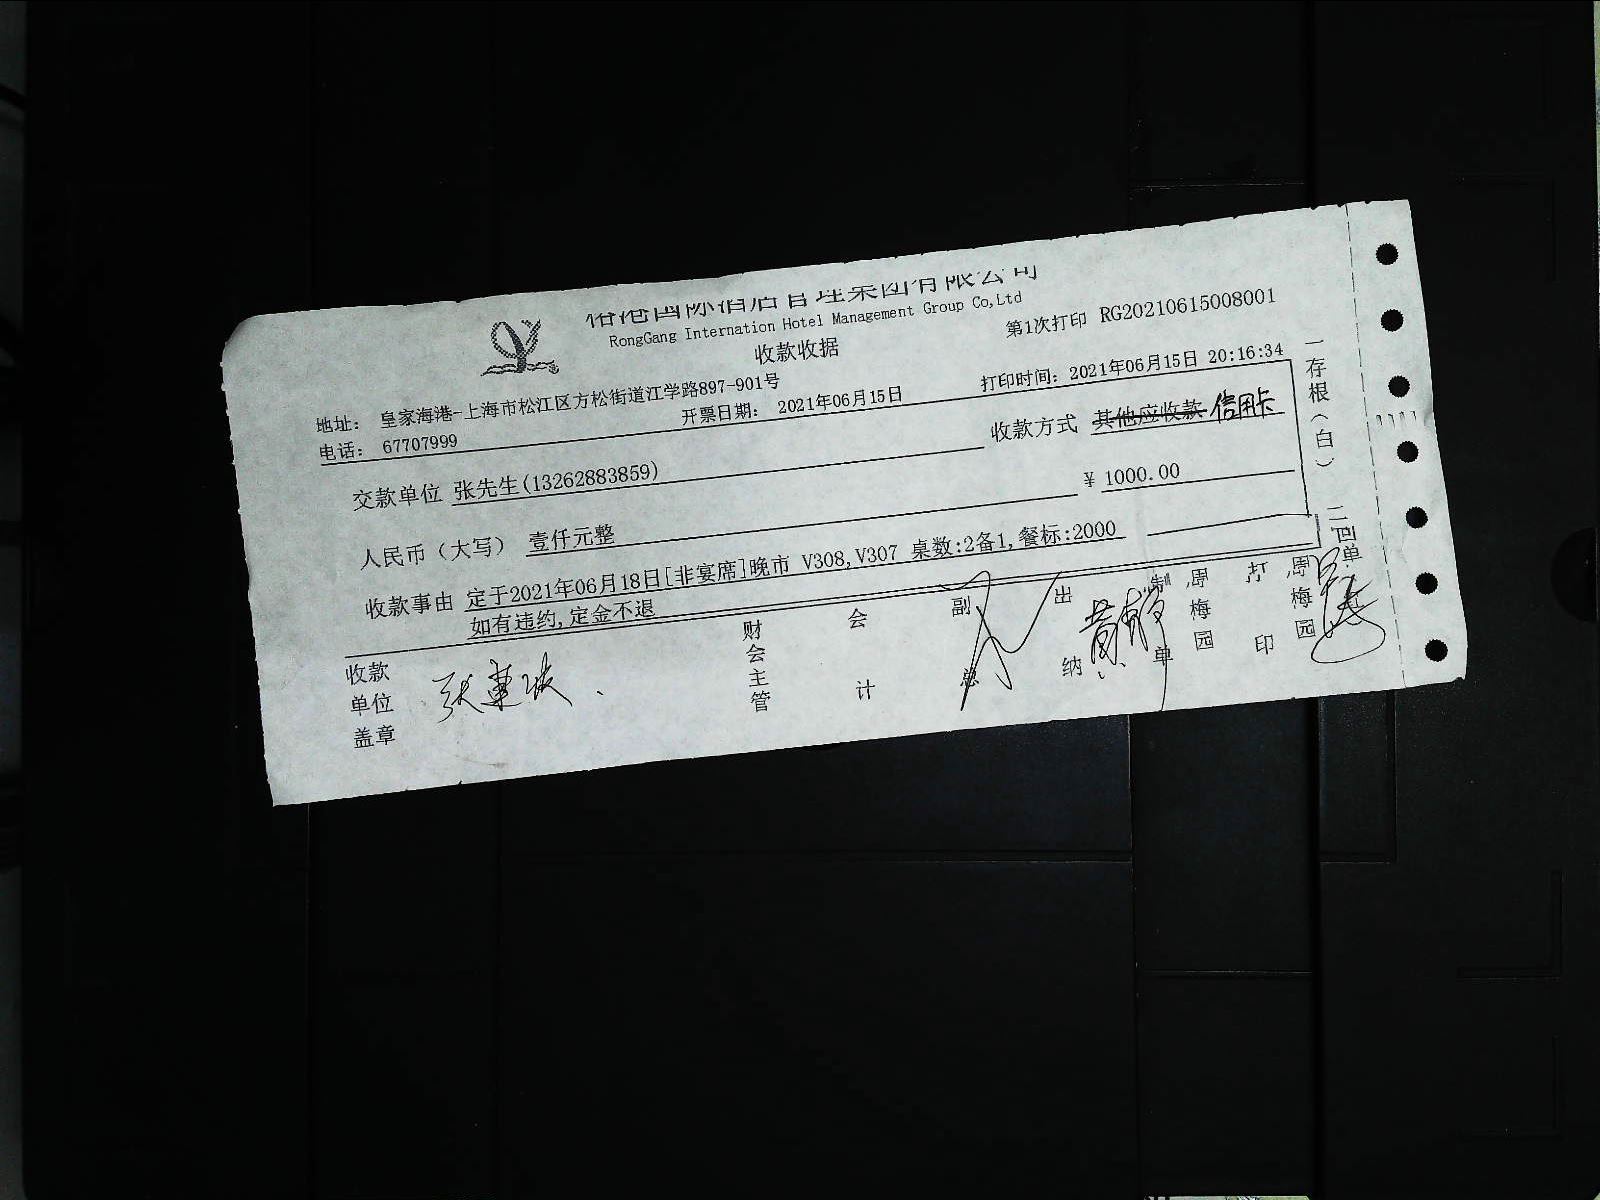 国际酒店管理集团有限公司
RongGang Internation Hotel Management Group Co,Ltd
收款收据
第1次打印 RG20210615008001
地址: 皇家海港-上海市松江区方松街道江学路897-901号
电话: 67707999 开票日期: 2021年06月15日 打印时间: 2021年06月15日 20:16:34
交款单位 张先生(13262883859) 收款方式 其他应收款 信用卡
人民币(大写) 壹仟元整 ¥ 1000.00
收款事由 定于2021年06月18日[非宴席]晚市 V308,V307 桌数:2备1,餐标:2000
如有违约,定金不退
收款单位盖章
财会主管
会计
副总
出纳
制单 周梅园
打印 周梅园
一存根(白)
二回单